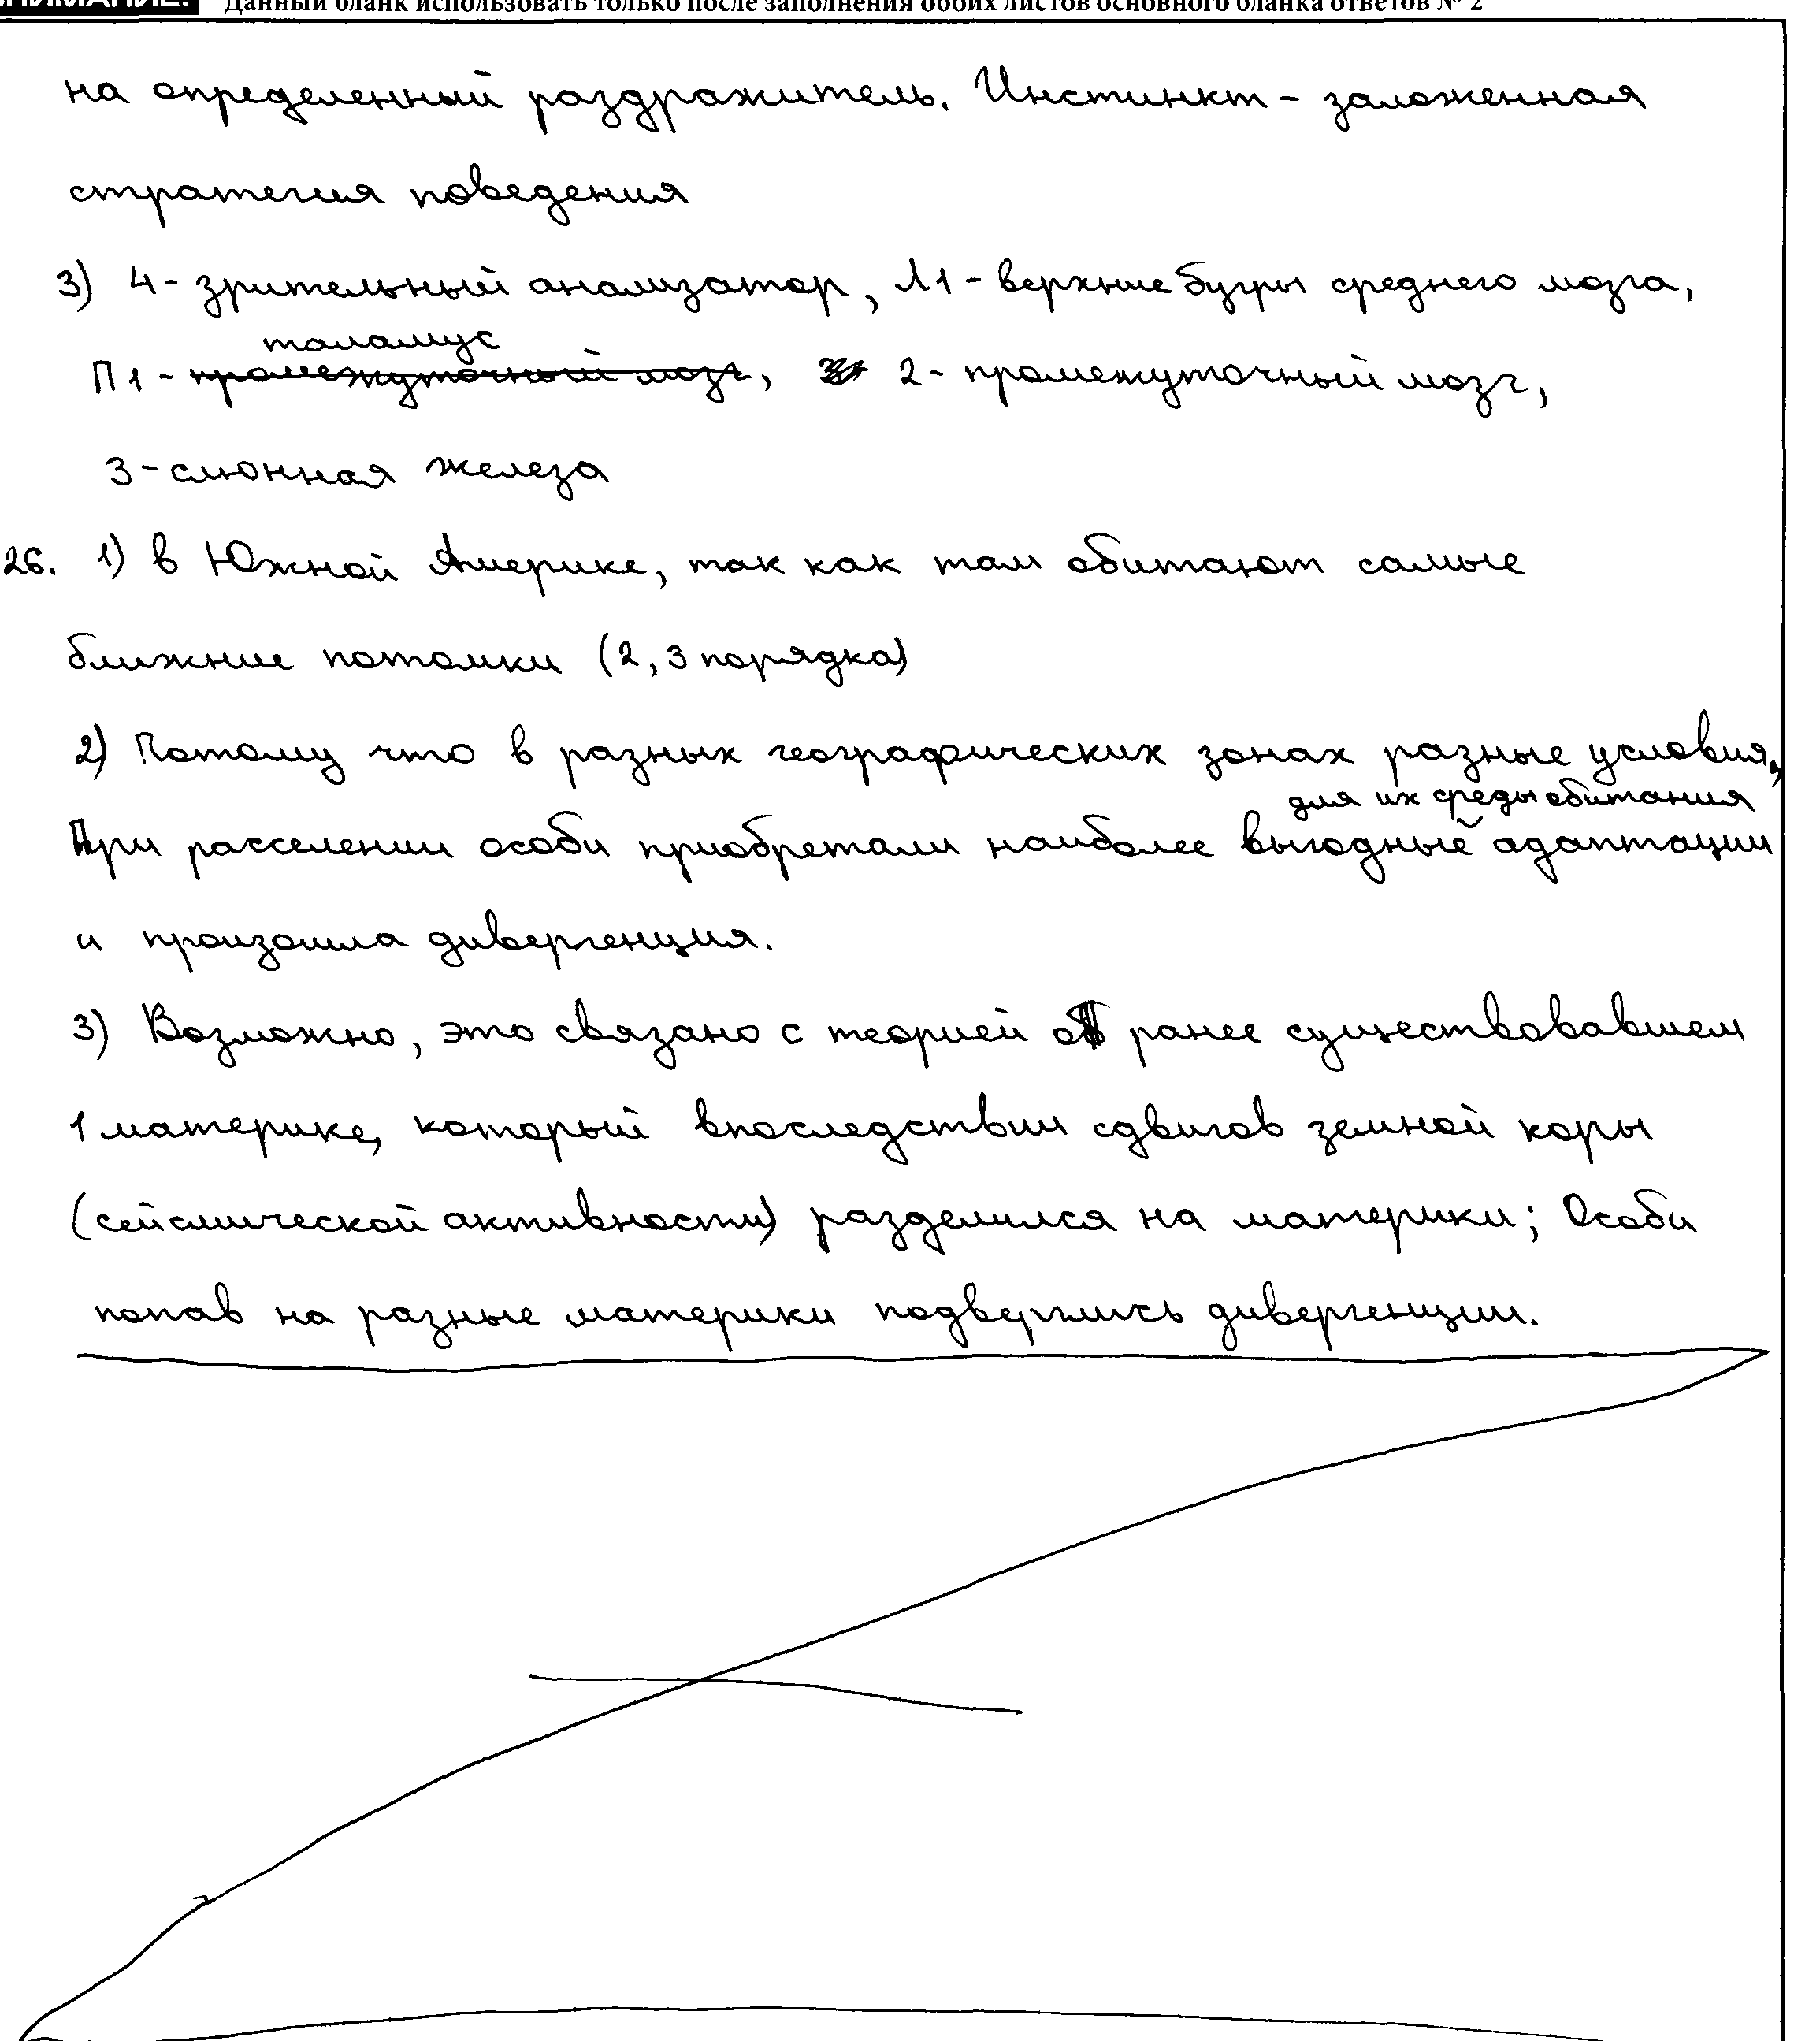 ВНИМАНИЕ! Данный бланк использовать только после заполнения обоих листов основного бланка ответов № 2
на определенный раздражитель. Инстинкт - заложенная
стратегия поведения
3) 4- зрительный анализатор, Л1 - верхние бугры среднего мозга,
таламус
П1 - промежуточный мозг, 2- промежуточный мозг,
3 - слюнная железа
26. 1) в Южной Америке, так как там обитают самые
ближние потомки (2, 3 порядка)
2) Потому что в разных географических зонах разные условия,
для их среды обитания
При расселении особи приобретали наиболее выгодные адаптации
и произошла дивергенция.
3) Возможно, это связано с теорией о ранее существовавшем
1 материке, который впоследствии сдвигов земной коры
(сейсмической активности) разделился на материки; Особи
попав на разные материки подверглись дивергенции.